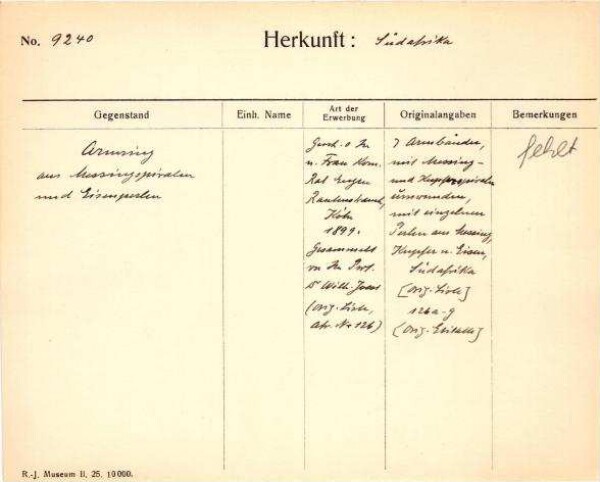 No. 9240 Herkunft: Südafrika
Gegenstand
Armring
aus Messingspiralen
und Eisenperlen
Einh. Name
Art der
Erwerbung
Gesch. v. Hn
u. Frau Kom.
Rat Eugen
Rautenstrauch,
Köln
1899.
Gesammelt
von Hn Prof.
Dr Wilh. Joest
(orig. Liste,
Abt. No 126)
Originalangaben
7 Armbänder,
mit Messing-
und Kupferspiralen
umwunden,
mit einzelnen
Perlen aus Messing,
Kupfer u. Eisen,
Südafrika
[orig. Liste]
126a-g
[Orig. Etikette]
Bemerkungen
fehlt
R.-J. Museum II. 25. 10000.